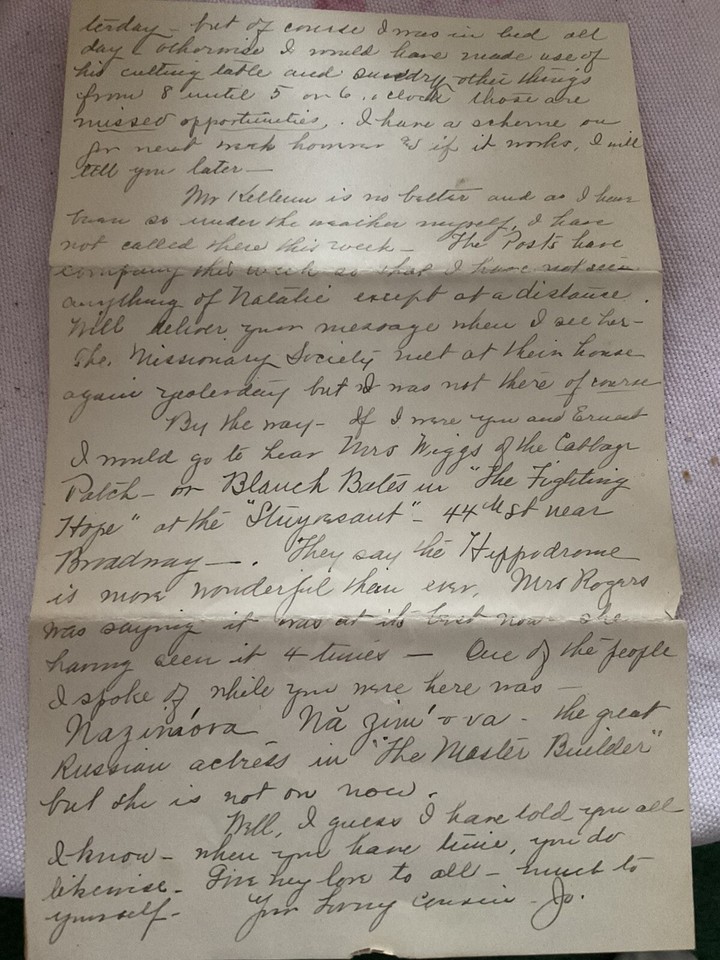 terday - but of course I was in bed all
day, otherwise I would have made use of
his cutting table and sundry other things
from 8 until 5 or 6 o'clock those are
missed opportunities. I have a scheme on
for next week however & if it works, I will
tell you later -
Mr is no better and as I have
been so under the weather myself, I have
not called there this week - The Posts have
company this week so that I have not seen
anything of Natalie except at a distance.
Will deliver your message when I see her -
The Missionary Society met at their house
again yesterday but I was not there of course
By the way - If I were you and Ernest
I would go to hear Mrs Wiggs of the Cabbage
Patch - or Blanch Bates in "The Fighting
Hope" at the "Stuyvesant" - 44th St near
Broadway -. They say the Hippodrome
is more wonderful than ever, Mrs Rogers
was saying it was at its best now - she
having seen it 4 times - One of the people
I spoke of while you were here was -
Nazimova Nă zim' o va - the great
Russian actress in "The Master Builder"
but she is not on now.
Well, I guess I have told you all
I know - when you have time, you do
likewise - Give my love to all - much to
yourself - Your Loving Cousin - Jo.